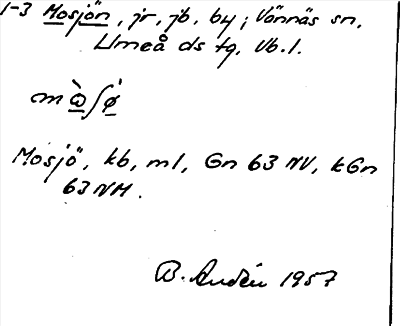 1-3 Mosjön, jr, jb, by; Vännäs sn,
Umeå ds tg, Vb. l.
Mosjö, kb, ml, Gn 63 NV, kGn
63 NV.
B. 1957